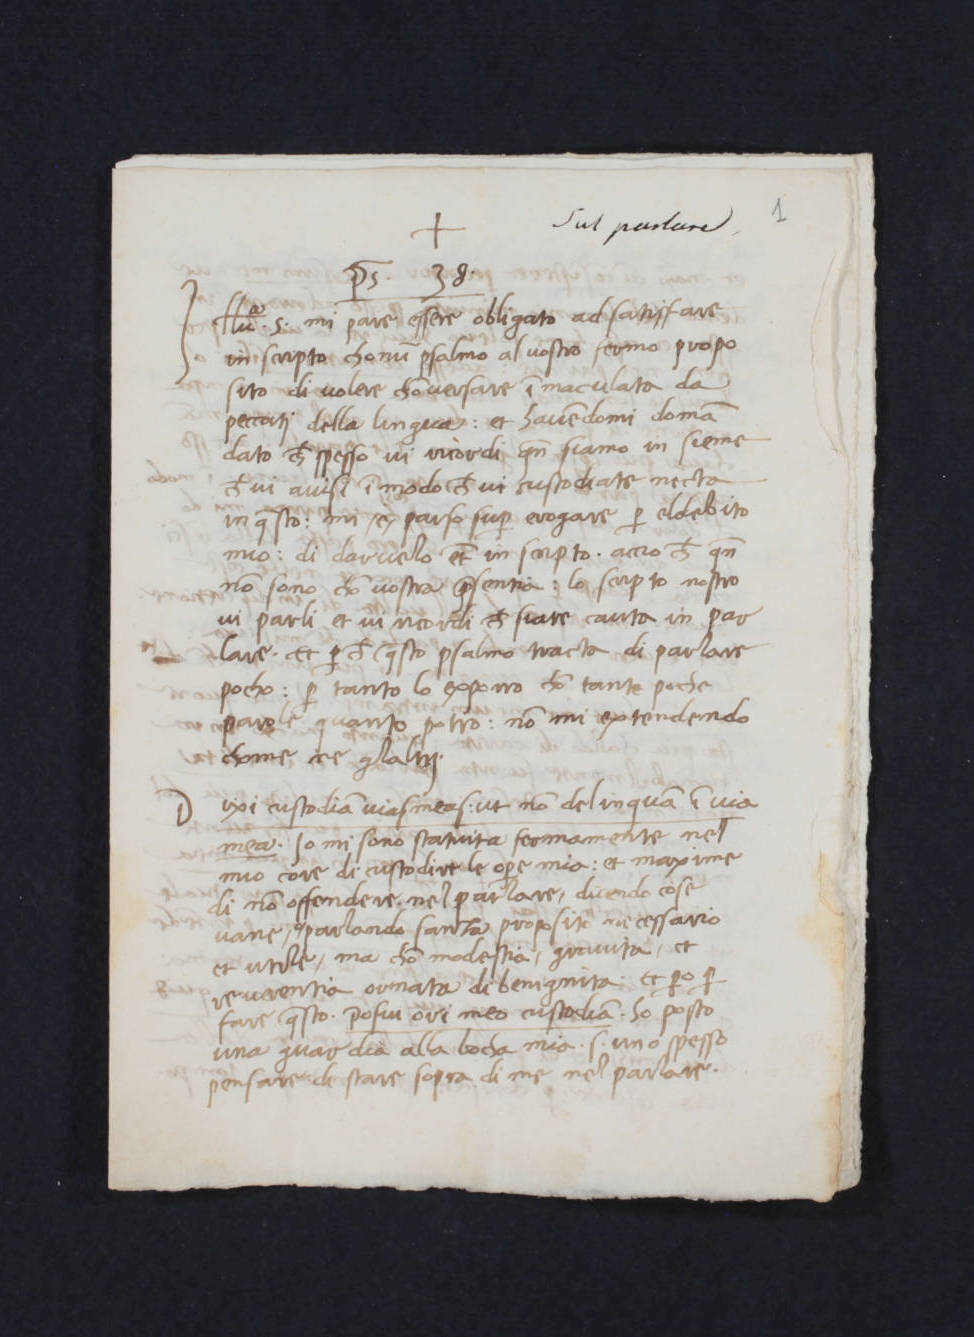 Sul parlare 1
+
p̄s. 38.
Illuᵃ. S. mi pare essere obligato ad satisffare
in scripto chonū psalmo al vostro fermo propo
sito di volere chōversare ī maculata da
peccatj della lingua: et havēdomi domā
dato ch̄ spesso vi ricordi qn̄ siamo in sieme
ch̄ vi avisi ī modo ch̄ vi custodiate necta
in q̄sto: mi e parso sup̄ erogare p̄ eldebito
mio: di darvelo et̄ in scripto. accio ch̄ qn̄
nō sono chō vostra p̄sentia: lo scripto nostro
vi parli et vi ricordi ch̄ siate cauta in par
lare. Et p̄ ch̄ q̄sto psalmo tracta di parlare
pocho: p̄ tanto lo exporro chō tante poche
parole quanto potro: nō mi extendendo
chome ne glaltrj.
D ixi custodiā vias meas: ut nō delinquā ī via
mea. Io mi sono statuita fermamente nel
mio core di custodire le op̄e mia: et maxime
di nō offendere nel parlare, dicendo cose
vane, parlando sanza proposito necessario
et utile, ma chō modestia, gravita, et
reverentia ornata di benignita. Et p̄o p̄
fare q̄sto. Posui ori meo custodiā. ho posto
una guardia alla bocha mia. s. uno spesso
pensare di stare sopra di me nel parlare.